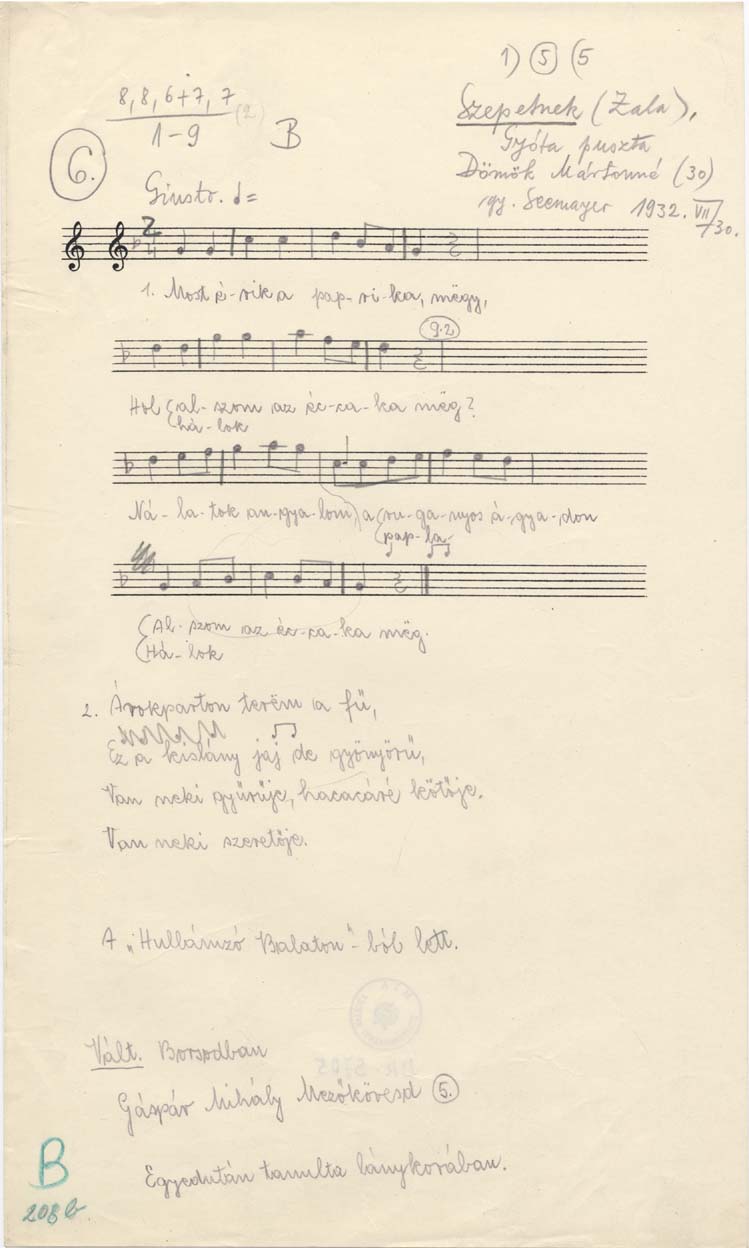 1) 5 (5
8, 8, 6+7, 7 (2)
1-9
B
6.
Szepetnek (Zala),
Gyóta puszta
Dömök Mártonné (30)
gy. Seemayer 1932. VII/30.
Giusto. ♩=
2/4
1. Most é-rik a pap-ri-ka, mëgy,
9.2
Hol al-szom az éc-ca-ka mëg?
há-lok
Ná-la-tok an-gya-lom, a ru-ga-nyos á-gya-don
pap-la-
Al-szom az éc-ca-ka mëg.
Há-lok
2. Árokparton terëm a fű,
Ez a kislány jaj de gyönyörű,
Van neki gyűrűje, hacacáré kötője.
Van neki szeretője.
A „Hullámzó Balaton"-ból lett.
Vált. Borsodban
Gáspár Mihály Mezőkövesd 5.
Egyedután tanulta lánykorában.
B
208b